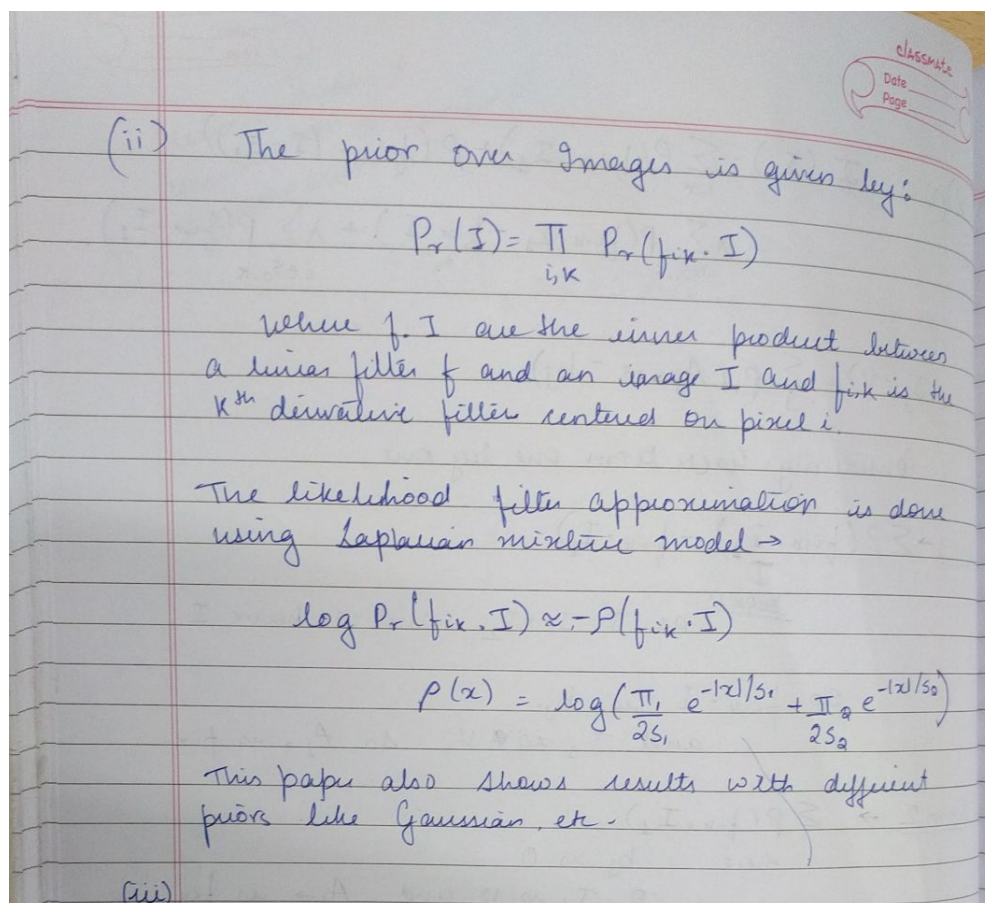 classmate
Date
Page
(ii) The prior over Images is given by:
Pr(I) = Π Pr(fik · I)
i,k
where f. I are the inner product between
a linear filter f and an image I and fi,k is the
kth derivative filter centered on pixel i.
The likelihood filter approximation is done
using Laplacian mixture model →
log Pr(fik . I) ≈ -ρ(fik · I)
ρ(x) = log(π1/2s1 e^-|x|/s1 + π2/2s2 e^-|x|/s2)
This paper also shows results with different
priors like Gaussian, etc.
(iii)